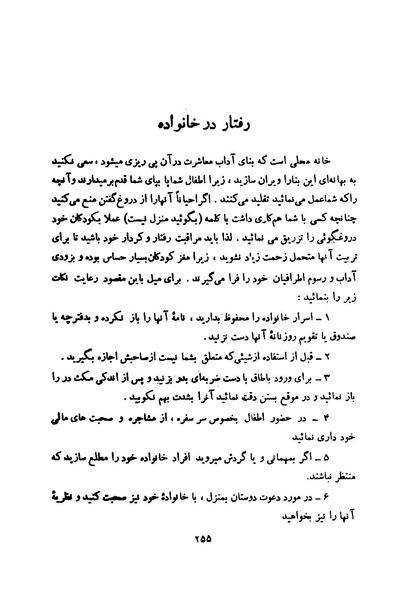 رفتار در خانواده
خانه محلی است که بنای آداب معاشرت در آن پی ریزی میشود ، سعی نکنید
به بهانه‌ای این بنارا ویران سازید ، زیرا اطفال شما پا بپای شما قدم برمیدارند و آنچه
را که شما عمل می‌نمائید تقلید می‌کنند . اگر احیاناً آنها را از دروغ گفتن منع می‌کنید
چنانچه کسی با شما هم‌کاری داشت با کلمه (بگوئید منزل نیست) عملا بکودکان خود
دروغگوئی را تزریق می نمائید . لذا باید مراقبت رفتار و کردار خود باشید تا برای
تربیت آنها متحمل زحمت زیاد نشوید ، زیرا مغز کودکان بسیار حساس بوده و بزودی
آداب و رسوم اطرافیان خود را فرا می‌گیرند . برای میل باین مقصود رعایت نکات
زیر را بنمائید :
۱ – اسرار خانواده را محفوظ بدارید ، نامهٔ آنها را باز نکرده و بدفترچه یا
صندوق یا تقویم روزنانهٔ آنها دست نزنید .
۲ – قبل از استفاده از شیئی‌که متعلق بشما نیست از صاحبش اجازه بگیرید .
۳ – برای ورود باطاق با دست ضربه‌ای بدر بزنید و پس از اندکی مکث در را
باز نمائید و در موقع بستن دقت نمائید آنرا بشدت بهم نکوبید .
۴ – در حضور اطفال بخصوص سر سفره ، از مشاجره و صحبت های مالی
خود داری نمائید
۵ – اگر بمهمانی و یا گردش میروید افراد خانواده خود را مطلع سازید که
منتظر نباشند.
۶ – در مورد دعوت دوستان بمنزل ، با خانوادهٔ خود نیز صحبت کنید و نظریهٔ
آنها را نیز بخواهید
۲۵۵